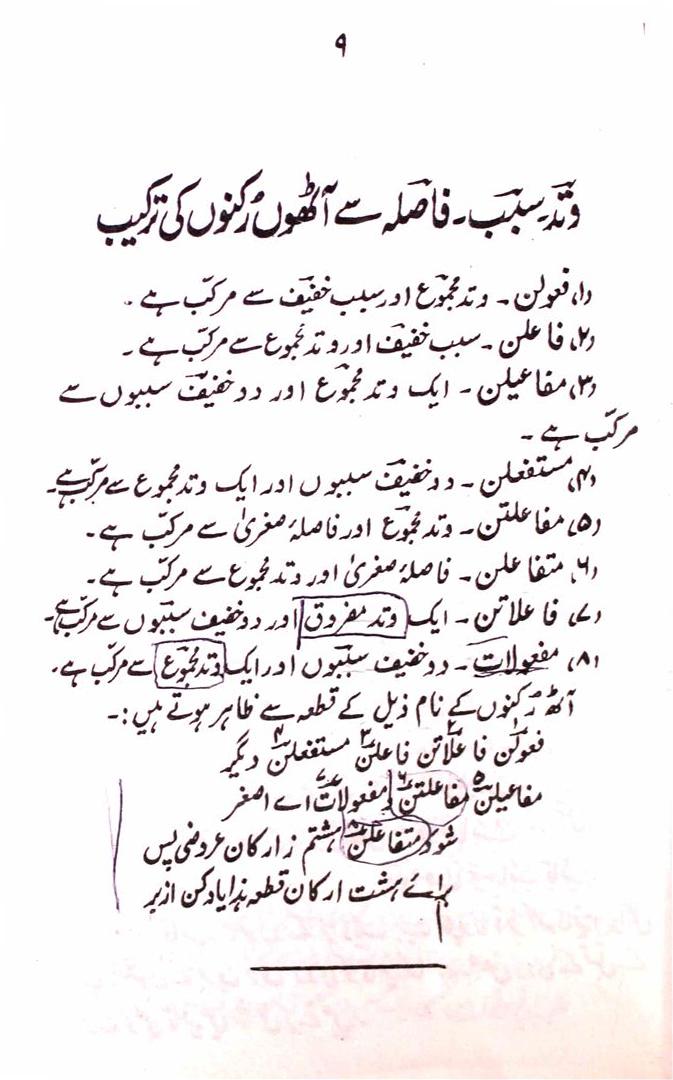 ۹
وتد۔ سبب۔ فاصلہ سے آٹھوں رُکنوں کی ترکیب
(۱) فعولن۔ وتد مجموع اور سبب خفیف سے مرکّب ہے۔
(۲) فاعلن۔ سبب خفیف اور وتد مجموع سے مرکّب ہے۔
(۳) مفاعیلن۔ ایک وتد مجموع اور دو خفیف سببوں سے
مرکّب ہے۔
(۴) مستفعلن۔ دو خفیف سببوں اور ایک وتد مجموع سے مرکّب ہے۔
(۵) مفاعلتن۔ وتد مجموع اور فاصلۂ صغریٰ سے مرکّب ہے۔
(۶) متفاعلن۔ فاصلۂ صغریٰ اور وتد مجموع سے مرکّب ہے۔
(۷) فاعلاتن۔ ایک وتد مفروق اور دو خفیف سببوں سے مرکّب ہے۔
(۸) مفعولات۔ دو خفیف سببوں اور ایک وتد مجموع سے مرکّب ہے۔
آٹھ رُکنوں کے نام ذیل کے قطعہ سے ظاہر ہوتے ہیں:۔
فعولن ۱ فاعلاتن ۲ فاعلن ۳ مستفعلن ۴ دیگر
مفاعیلن ۵ مفاعلتن ۶ و مفعولات ۷ اے اصغر
شود متفاعلن ۸ ہشتم ز ارکان عروضی پس
برائے ہشت ارکان قطعہ ہٰذا یاد کن ازبر